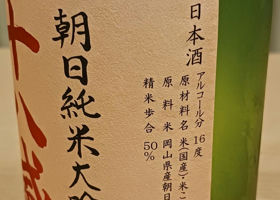 日本酒
アルコール分 16度
原材料名 米(国産)・米こ
原料米 岡山県産朝日
精米歩合 50%
朝日純米大吟
十八盛